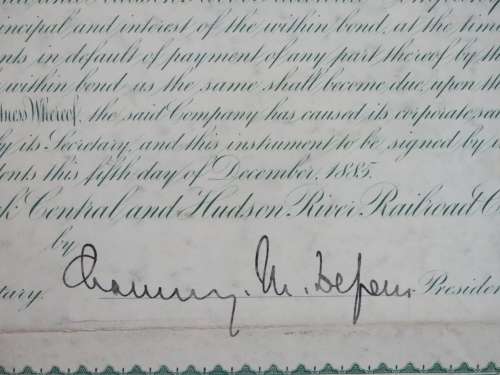 principal and interest of the within bond, at the time
in default of payment of any part thereof by the
within bond as the same shall become due, upon the
Whereof, the said Company has caused its corporate
by its Secretary, and this instrument to be signed by
this fifth day of December, 1885.
Central and Hudson River Railroad
by
Chauncey M. Depew President